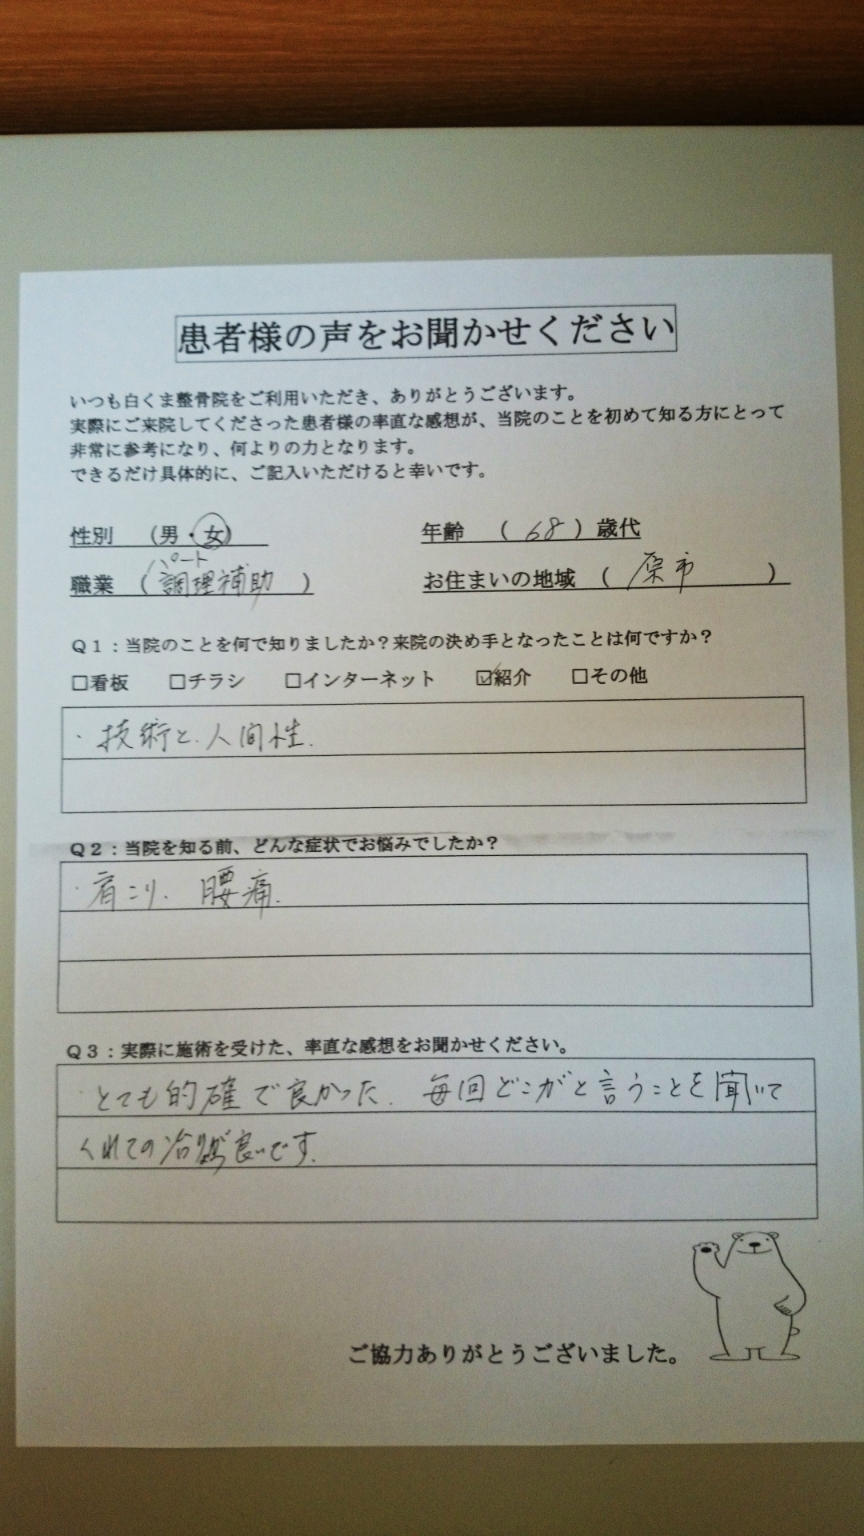 患者様の声をお聞かせください
いつも白くま整骨院をご利用いただき、ありがとうございます。
実際にご来院してくださった患者様の率直な感想が、当院のことを初めて知る方にとって
非常に参考になり、何よりの力となります。
できるだけ具体的に、ご記入いただけると幸いです。
性別 （男・女） 年齢 （ 68 ）歳代
パート
職業 （調理補助 ） お住まいの地域 （ 原市 ）
Q1：当院のことを何で知りましたか？来院の決め手となったことは何ですか？
□看板 □チラシ □インターネット ☑紹介 □その他
・技術と、人間性.
Q2：当院を知る前、どんな症状でお悩みでしたか？
・肩こり、腰痛.
Q3：実際に施術を受けた、率直な感想をお聞かせください。
・とても的確で良かった. 毎回どこがと言うことを聞いて
くれての治療が良いです.
ご協力ありがとうございました。